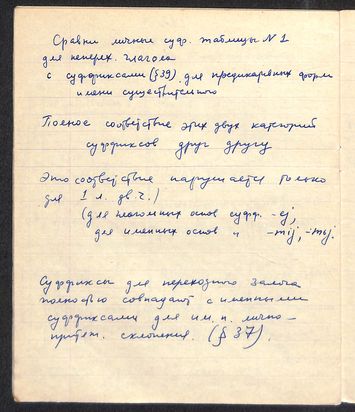 Сравни личные суф. таблицы N 1
для неперех. глагола
с суффиксами (§39) для предикативных форм
имени существительного
Полное соответствие этих двух категорий
суффиксов друг другу
Это соответствие нарушается только
для I л. дв. ч.)
(для глагольных основ суфф. -ej,
для именных основ " -mij, -moj.
Суффиксы для переходного залога
полностью совпадают с именными
суффиксами для им. п. лично-
притяж. склонения. (§ 37).